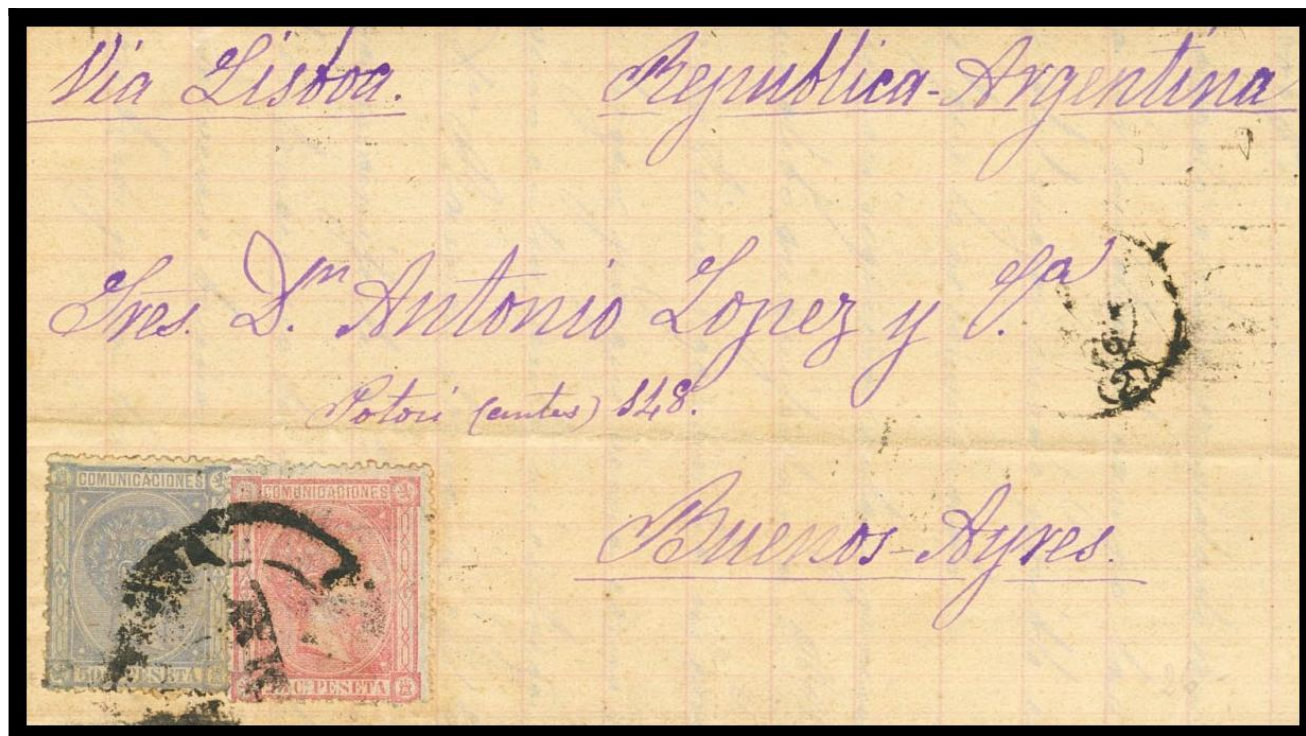 Via Lisboa. Republica-Argentina
Sres. Dn. Antonio Lopez y Ca
Potosi (antes) 148.
Buenos-Ayres.
COMUNICACIONES COMUNICACIONES
PESETA C. PESETA